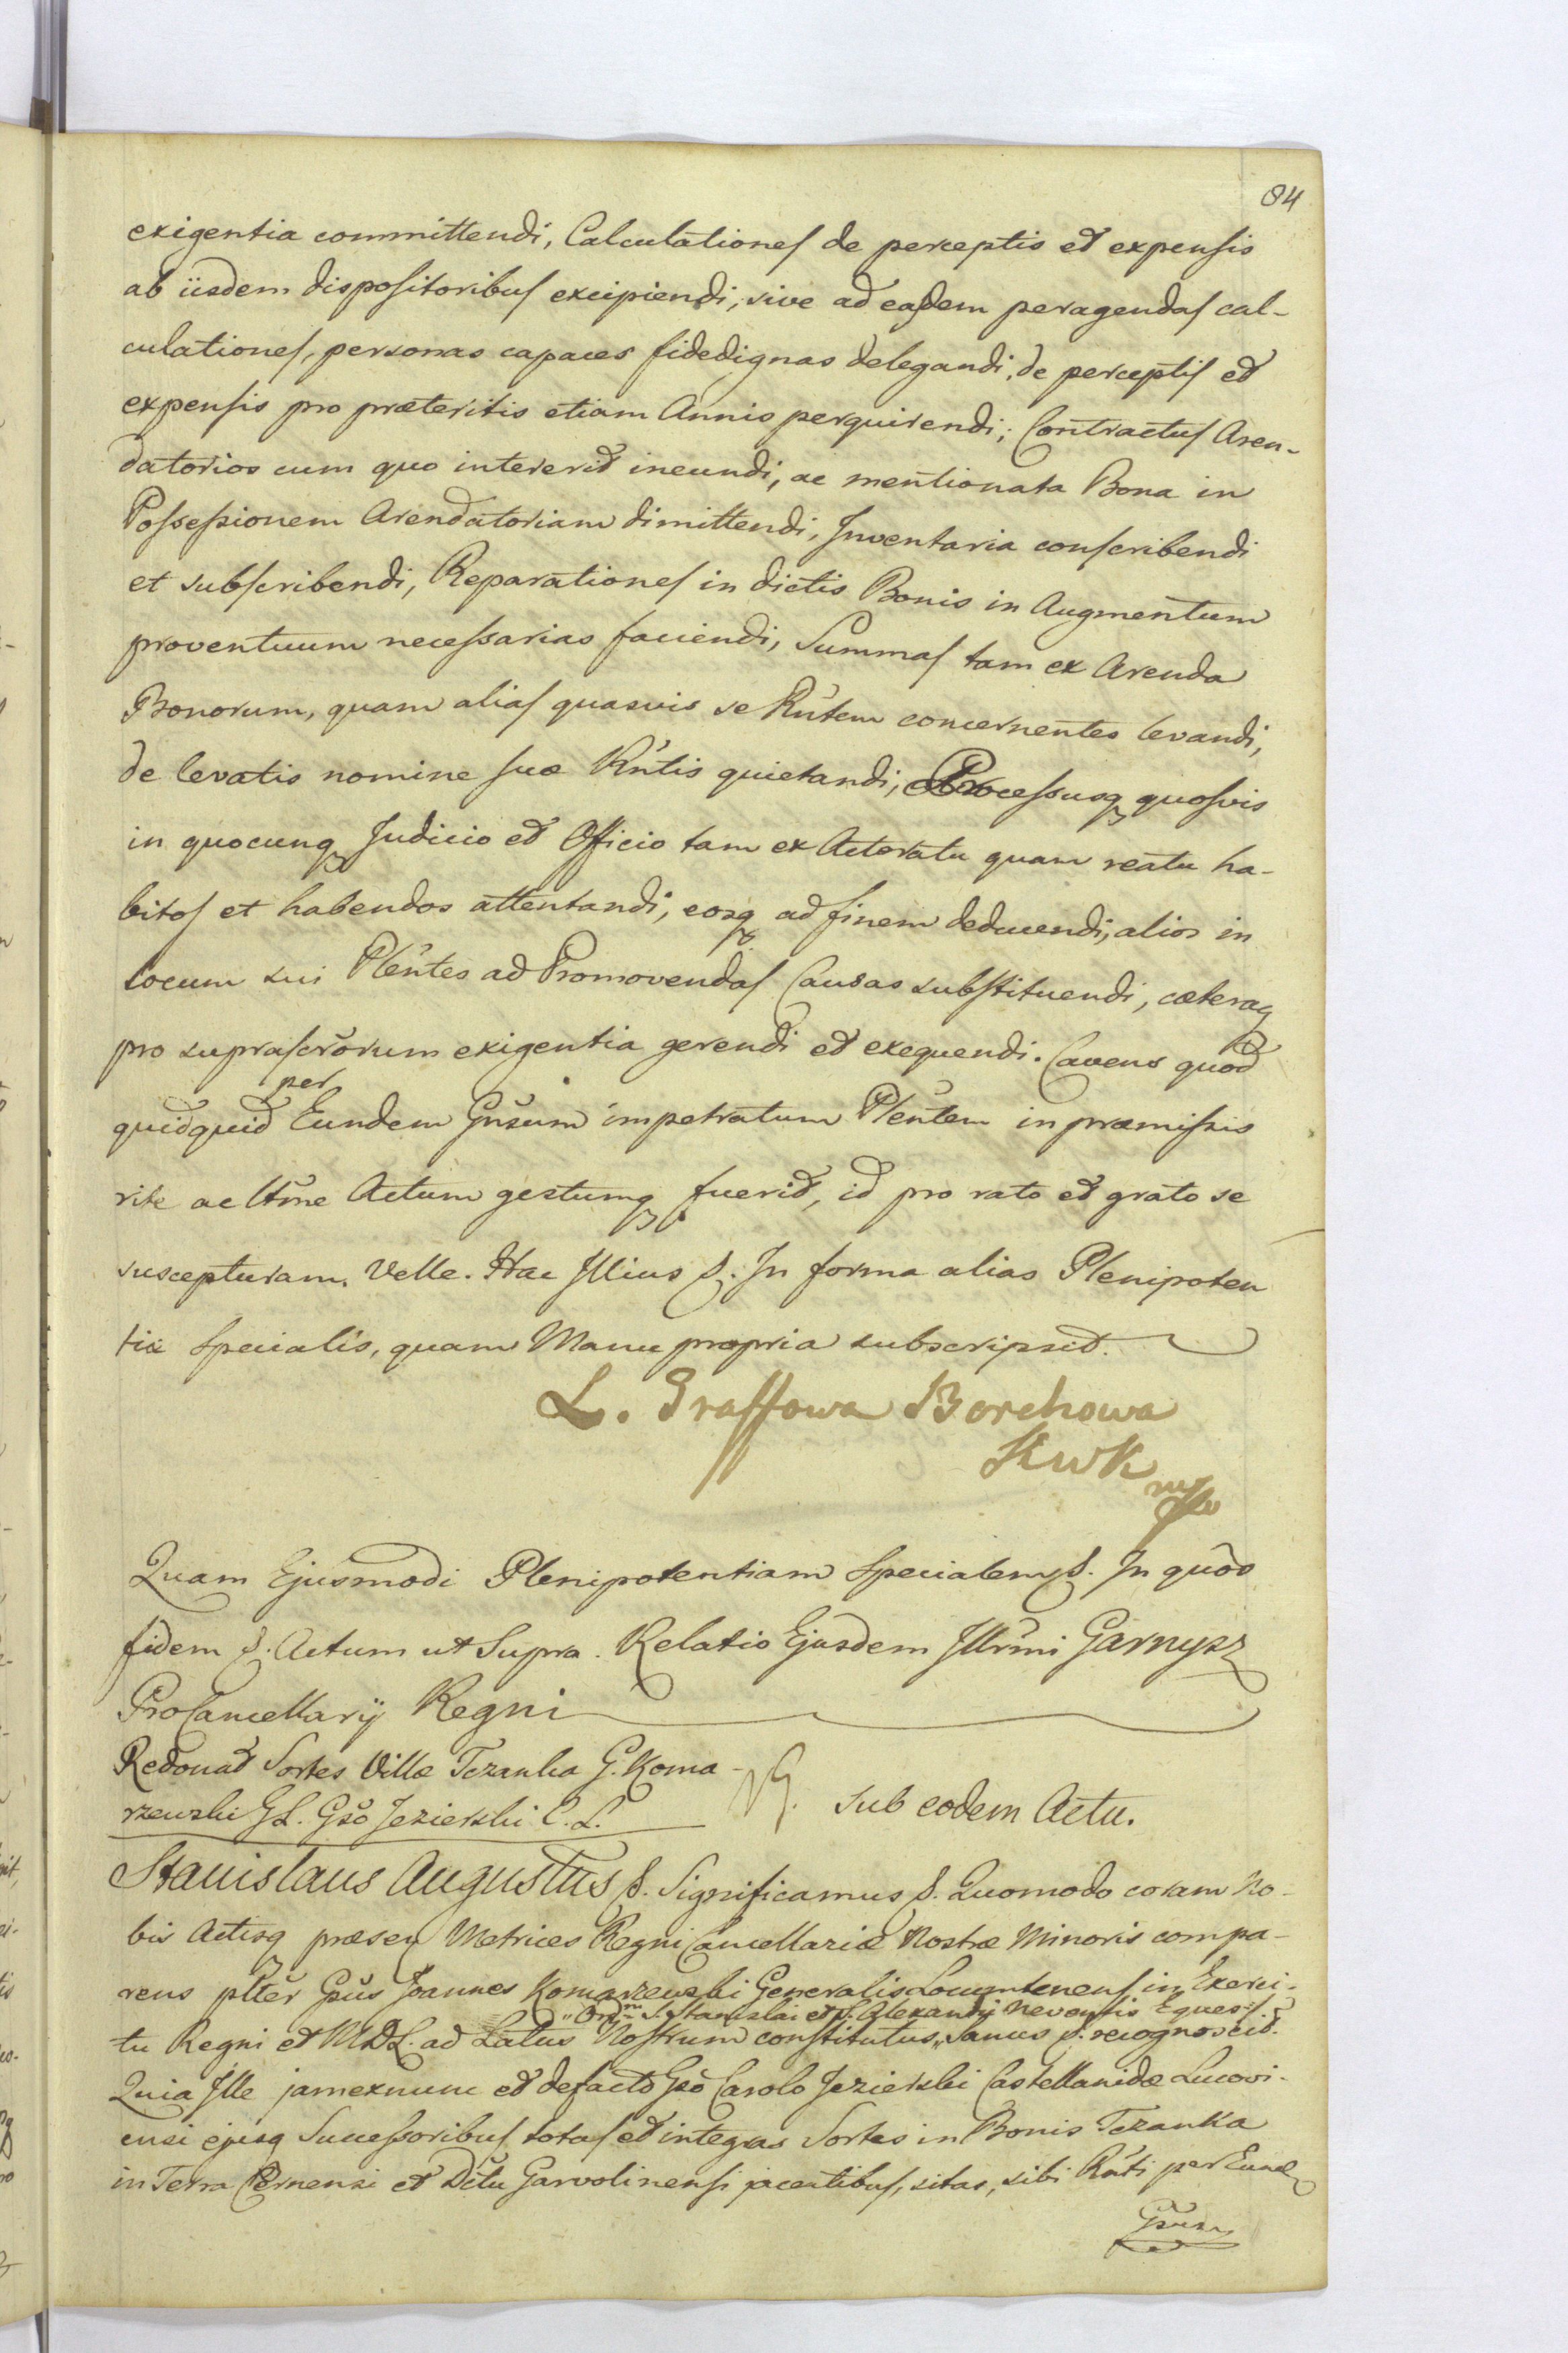 84
exigentia committendi, Calculationes de perceptis et expensis
ab iisdem dispositoribus excipiendi, sive ad easdem peragendas cal-
culationes, personas capaces fidedignas delegandi, de perceptis et
expensis pro præteritis etiam Annis perquirendi; Contractus Aren-
datorios cum quo intererit ineundi, ac mentionata Bona in
Possessionem Arendatoriam dimittendi, Inventaria conscribendi
et subscribendi, Reparationes in dictis Bonis in Augmentum
proventuum necessarias faciendi, Summas tam ex Arenda
Bonorum, quam alias quasvis se Rntem concernentes levandi,
de levatis nomine suæ Rntis quietandi, Processusq quosvis
in quocunq Judicio et Officio tam ex Actoratu quam reatu ha-
bitos et habendos attentandi, eosq ad finem deducendi, alios in
locum sui Plentes ad Promovendas Causas substituendi, cæteraq
pro suprascrorum exigentia gerendi et exequendi. Cavens quod
quidquid per Eundem Gnsum impetratum Plentem in præmissis
rite ac ltme Actum gestumq fuerit, id pro rato et grato se
suscepturam. Velle. Hac Illius &. In forma alias Plenipoten
tiæ Specialis, quam Manu propria subscripsit.
L. Graffowa Borchowa
KWK
mp
Quam Ejusmodi Plenipotentiam Specialem &. In quos
fidem &. Actum ut Supra. Relatio Ejusdem Illrmi Garnysz
ProCancellarij Regni
Redonat Sortes Villæ Tezanka G. Koma-
rzewski GL. Gso Jezierski C. L.
sub eodem Actu.
Stanislaus Augustus &. Significamus &. Quomodo coram No-
bis Actisq præsen Metrices Regni Cancellariæ Nostræ Minoris compa-
rens plter Gsus Joannes Komarzewski Generalis Locumtenens in Exerci-
"Ordm S. Stanislai et S. Alexandrij Nevensis Eques
tu Regni et MDL. ad Latus Nostrum constitutus, sanus &. recognoscit.
Quia Ille jamexnunc et defacto Gso Carolo Jezierski Castellanidæ Lucovi-
ensi ejusq Successoribus totas et integras Sortes in Bonis Tezanka
in Terra Cernensi et Dctu Garvolinensi jacentibus, sitas, sibi Rnti per Eund
Gsum